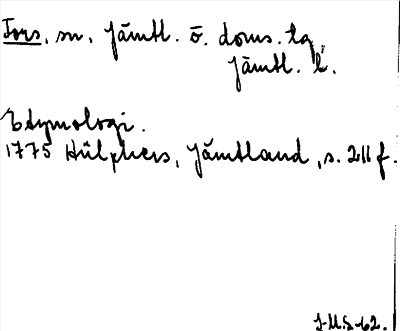 Fors, sn, Jämtl. ö. doms. tg,
Jämtl. l.
Etymologi.
1775 Hülphers, Jämtland, s. 211 f.
J-U.S-62.